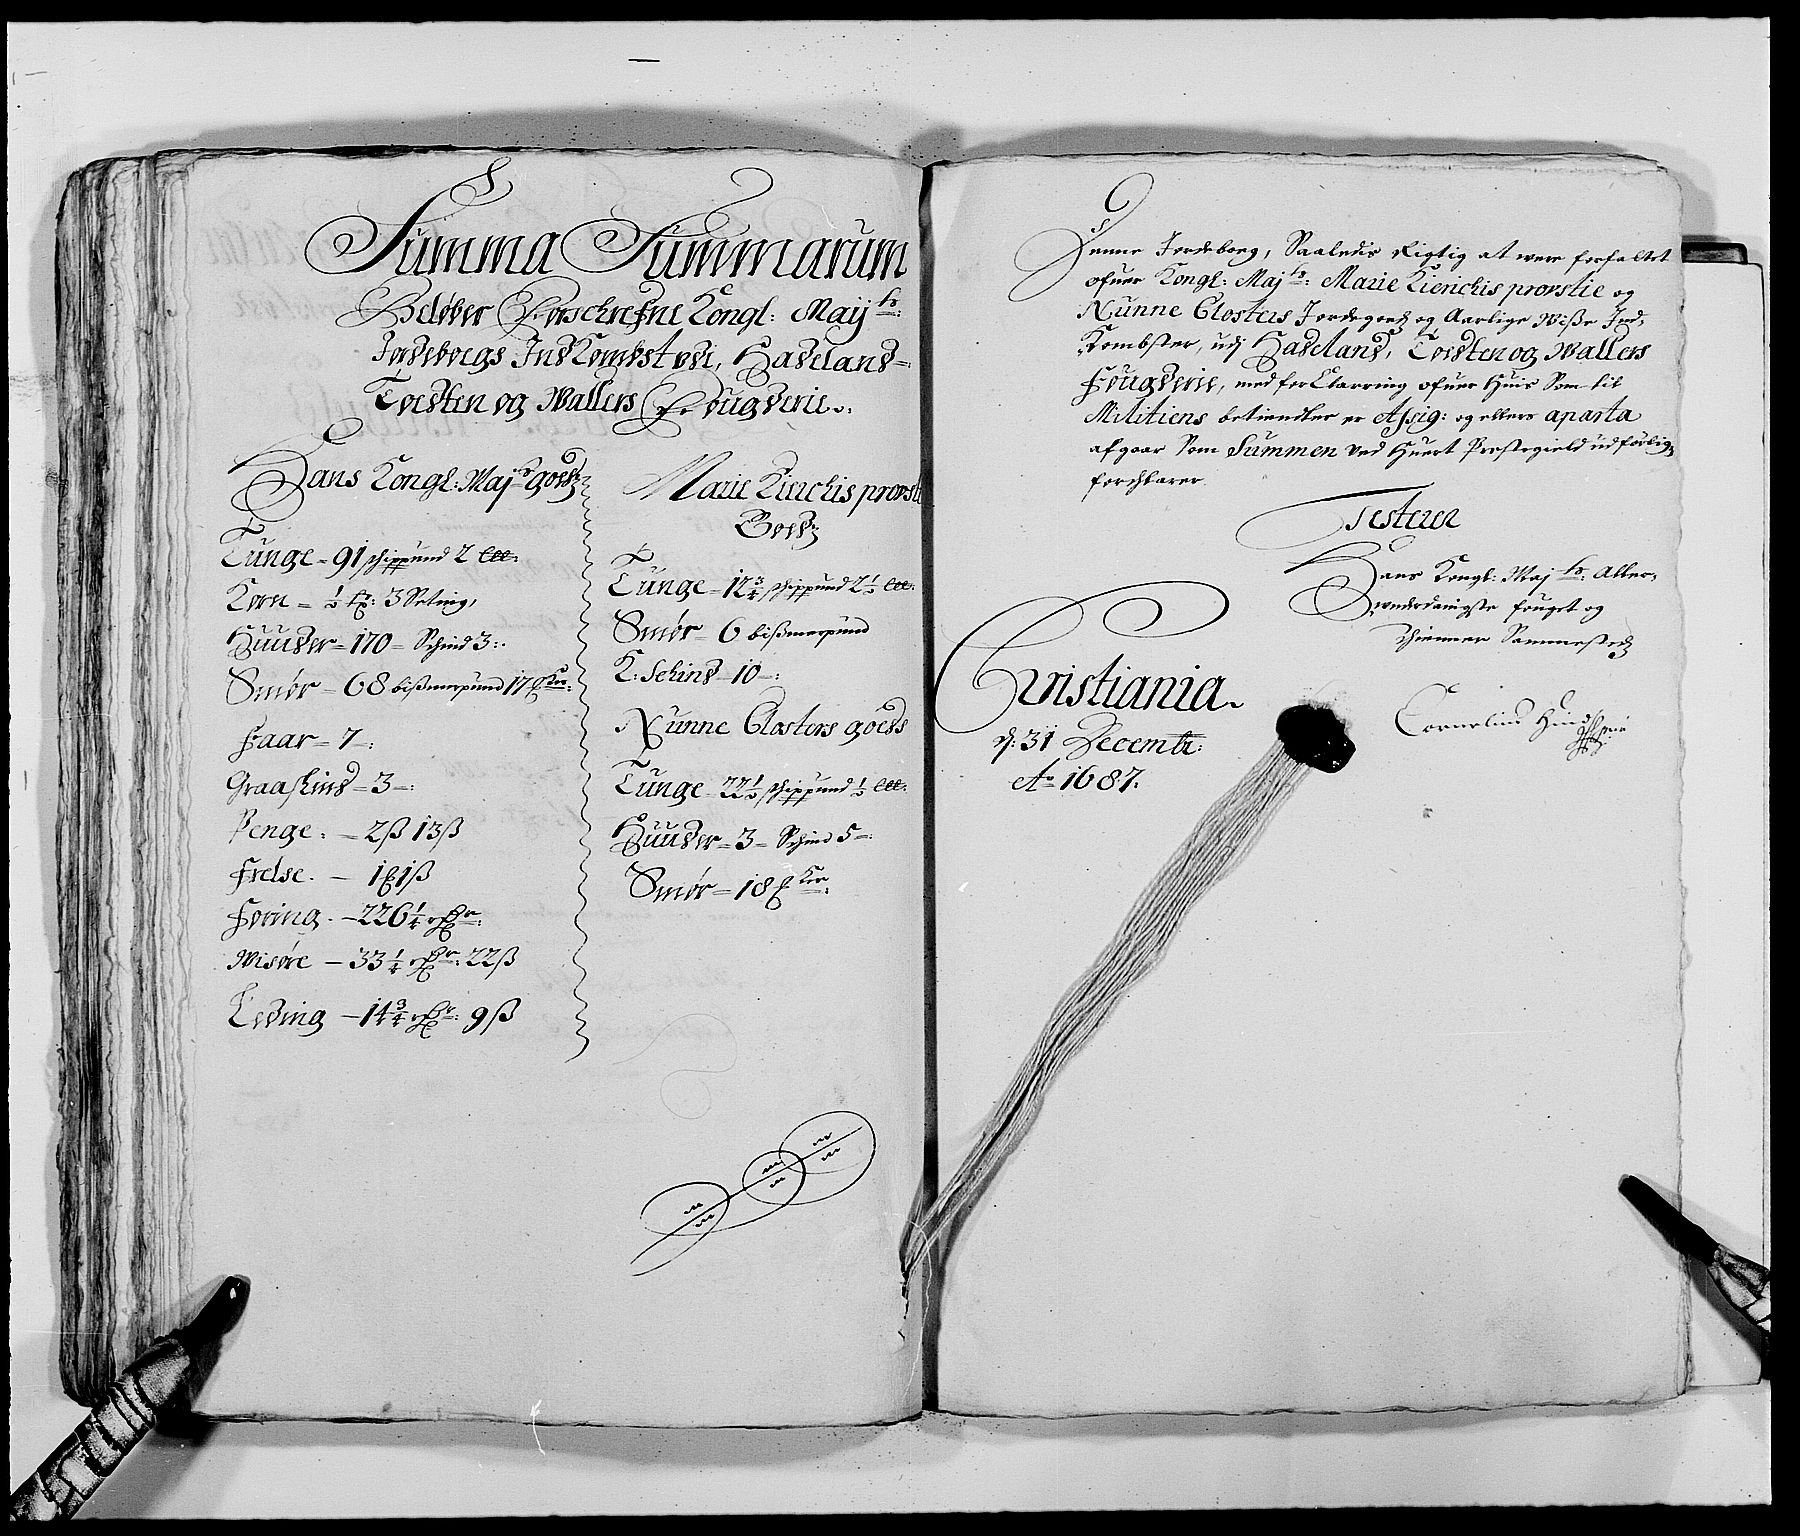 Summa Summarum
Beløber Forschrefne Kongl: Maÿ ts:
Jordebogs Indkombst udi, Hadeland-
Toedten og Wallers Fougderie.
Hans Kongl: Maj ts goedz
Tunge - 91 schippund 2 Lll:
Korn - ½ 3 Seting,
Huuder - 170 - Schind 3:
Smør - 68 bissmerpund 17
Faar - 7 -:
Graaskind - 3 -:
Penge. - 2ß 13ß
Frelse. - 1 1ß
Foring. - 226¼ rdr:
Wisøre - 33¼ rdr: 22ß
Leding - 14¾ rdr: 9ß
Marie Kierchis provstie
Goedz
Tunge - 12¾ schippund 2½ Lll:
Smør - 6 bissmerpund
K: Schind - 10 -:
Nunne Closters goeds
Tunge - 22½ schippund ½ Lll:
Huuder - 3 - Schind 5 -:
Smør - 18
Denne Jordebog, Saaledis Rigtig at were forfattet
ofuer Kongl: Maj ts: Marie Kierchis provstie og
Nunne Closters Jordegoedz og Aarlige Wisse Ind-
Kombster, udj Hadeland, Toedten og Wallers
Fougderie, med forClarring ofuer Huis Som til
Militiens betiendter er Assig: og ellers aparta
afgaar Som Summen ved Huert Prestegield udførlig
forchlarer
Testerer
Hans Kongl: Maj ts: Aller-
underdanigste fouget og
thienner Sammestedz
Cornelius
Cristiania.
d: 31 Decembr:
Ao 1687.